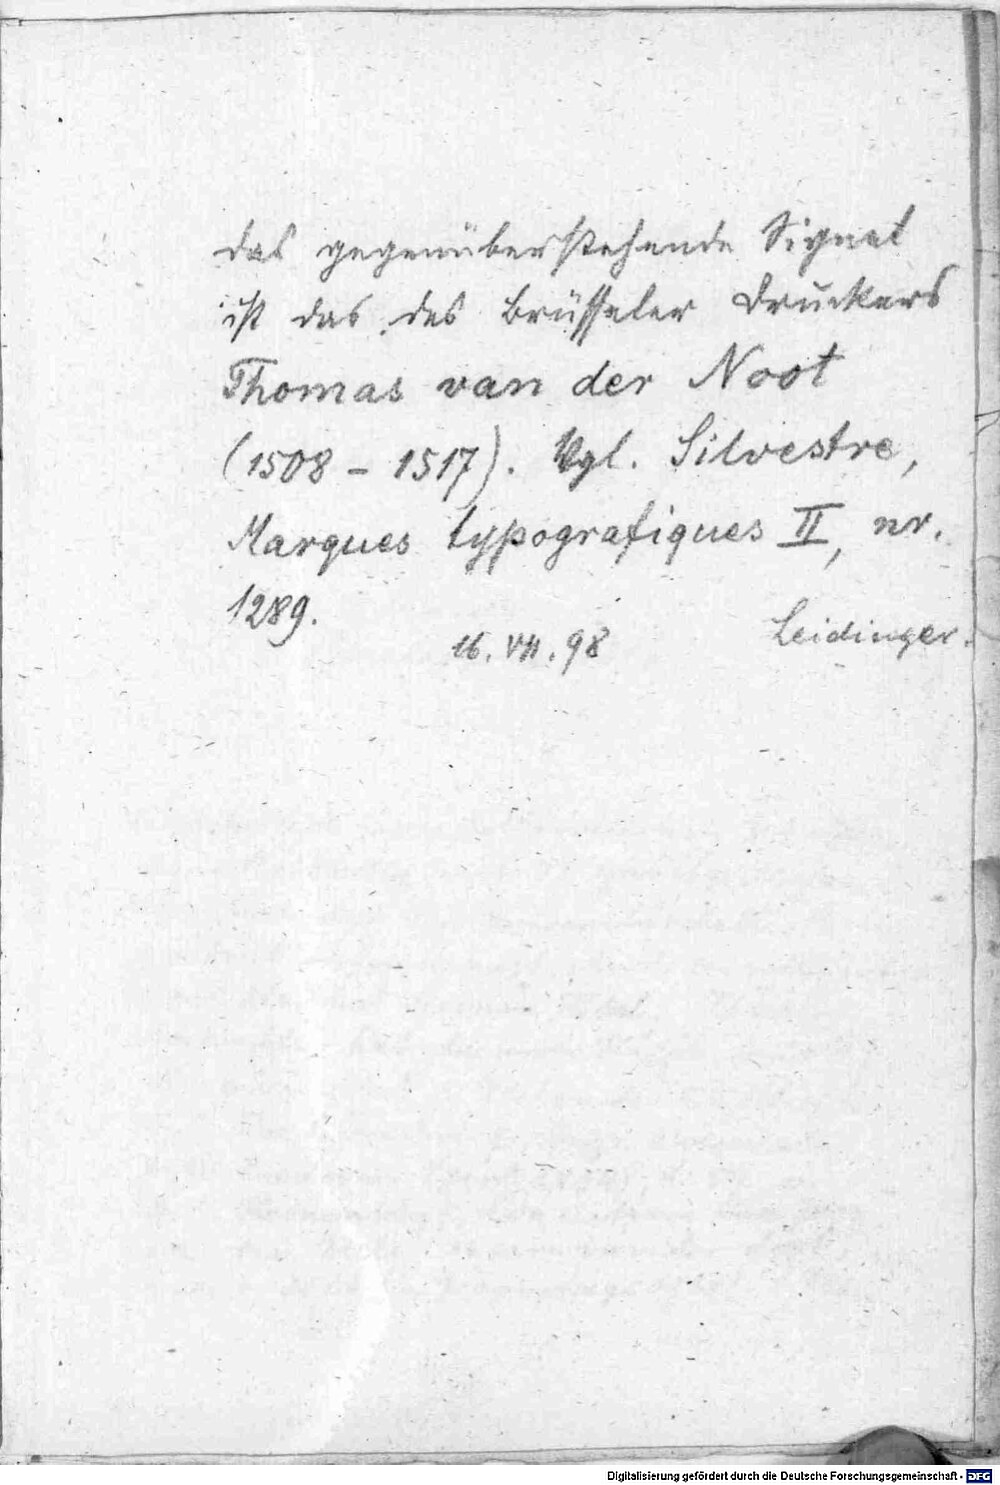 Das gegenüberstehende Signet
ist das des Brüsseler Druckers
Thomas van der Noot
(1508 - 1517). Vgl. Silvestre,
Marques typografiques II, nr.
1289.
16. VII. 98 Leidinger.
Digitalisierung gefördert durch die Deutsche Forschungsgemeinschaft - DFG